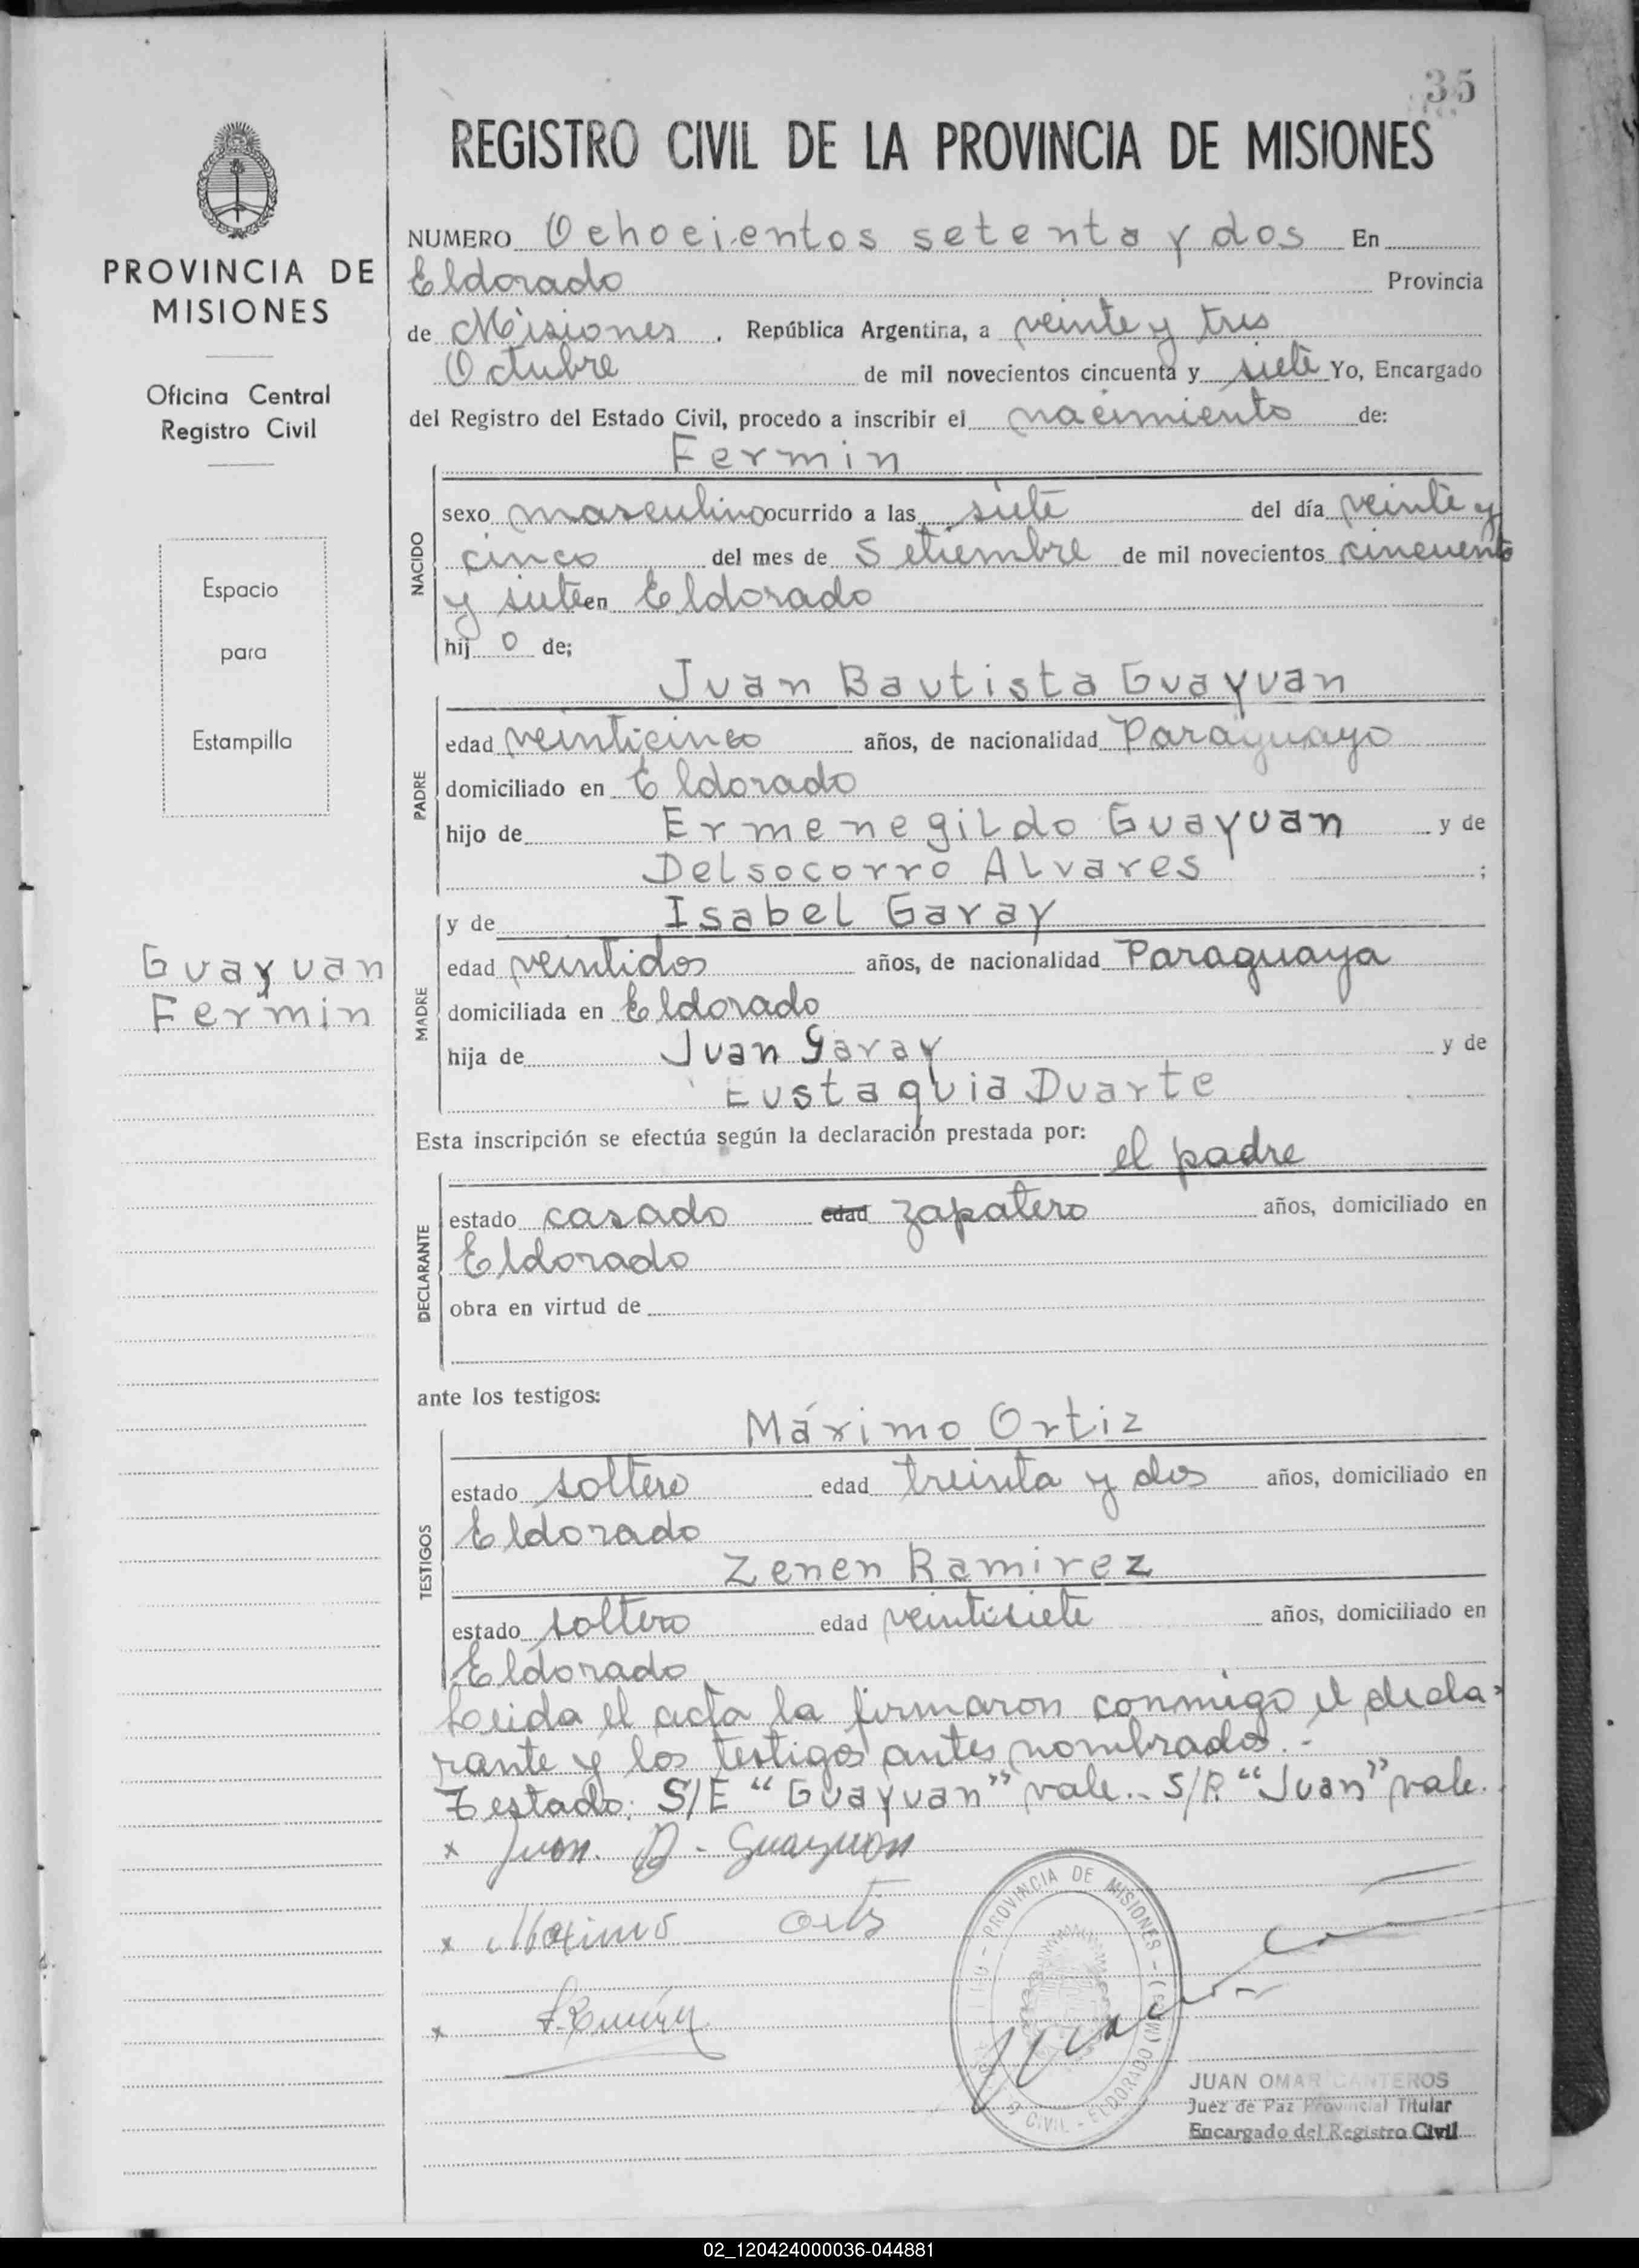 35
REGISTRO CIVIL DE LA PROVINCIA DE MISIONES
PROVINCIA DE
MISIONES
Oficina Central
Registro Civil
Espacio
para
Estampilla
Guayuan
Fermin
NUMERO Ochocientos setenta y dos En
Eldorado Provincia
de Misiones . República Argentina, a veinte y tres
Octubre de mil novecientos cincuenta y siete Yo, Encargado
del Registro del Estado Civil, procedo a inscribir el nacimiento de:
Fermin
NACIDO
sexo masculino ocurrido a las siete del día veinte y
cinco del mes de Setiembre de mil novecientos cincuenta
y siete en Eldorado
hij o de;
Juan Bautista Guayuan
PADRE
edad veinticinco años, de nacionalidad Paraguayo
domiciliado en Eldorado
hijo de Ermenegildo Guayuan y de
Delsocorro Alvares ;
MADRE
y de Isabel Garay
edad veintidos años, de nacionalidad Paraguaya
domiciliada en Eldorado
hija de Juan Garay y de
Eustaquia Duarte
Esta inscripción se efectúa según la declaración prestada por:
el padre
DECLARANTE
estado casado edad zapatero años, domiciliado en
Eldorado
obra en virtud de
ante los testigos:
TESTIGOS
Máximo Ortiz
estado soltero edad treinta y dos años, domiciliado en
Eldorado
Zenen Ramirez
estado soltero edad veintisiete años, domiciliado en
Eldorado
Leida el acta la firmaron conmigo el decla-
rante y los testigos antes nombrados.-
Testado: S/E "Guayuan" vale.. S/R "Juan" vale.
x Juan. B - Guayuan
x Maximo Ortiz
x
PROVINCIA DE MISIONES - CIVIL - ELDORADO
JUAN OMAR CANTEROS
Juez de Paz Provincial Titular
Encargado del Registro Civil
02_120424000036-044881